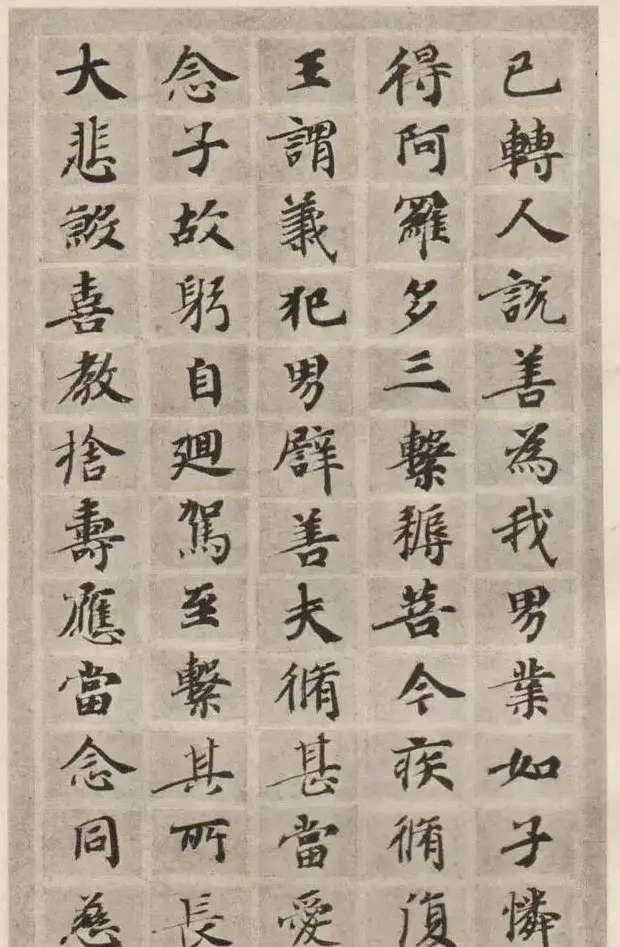 已轉人說善為我男業如子憐
得阿羅多三繫耨菩今疾脩復
王謂義犯男辟善夫脩甚當愛
念子故躬自迴駕至繫其所長
大悲毀喜教捨壽應當念同慈